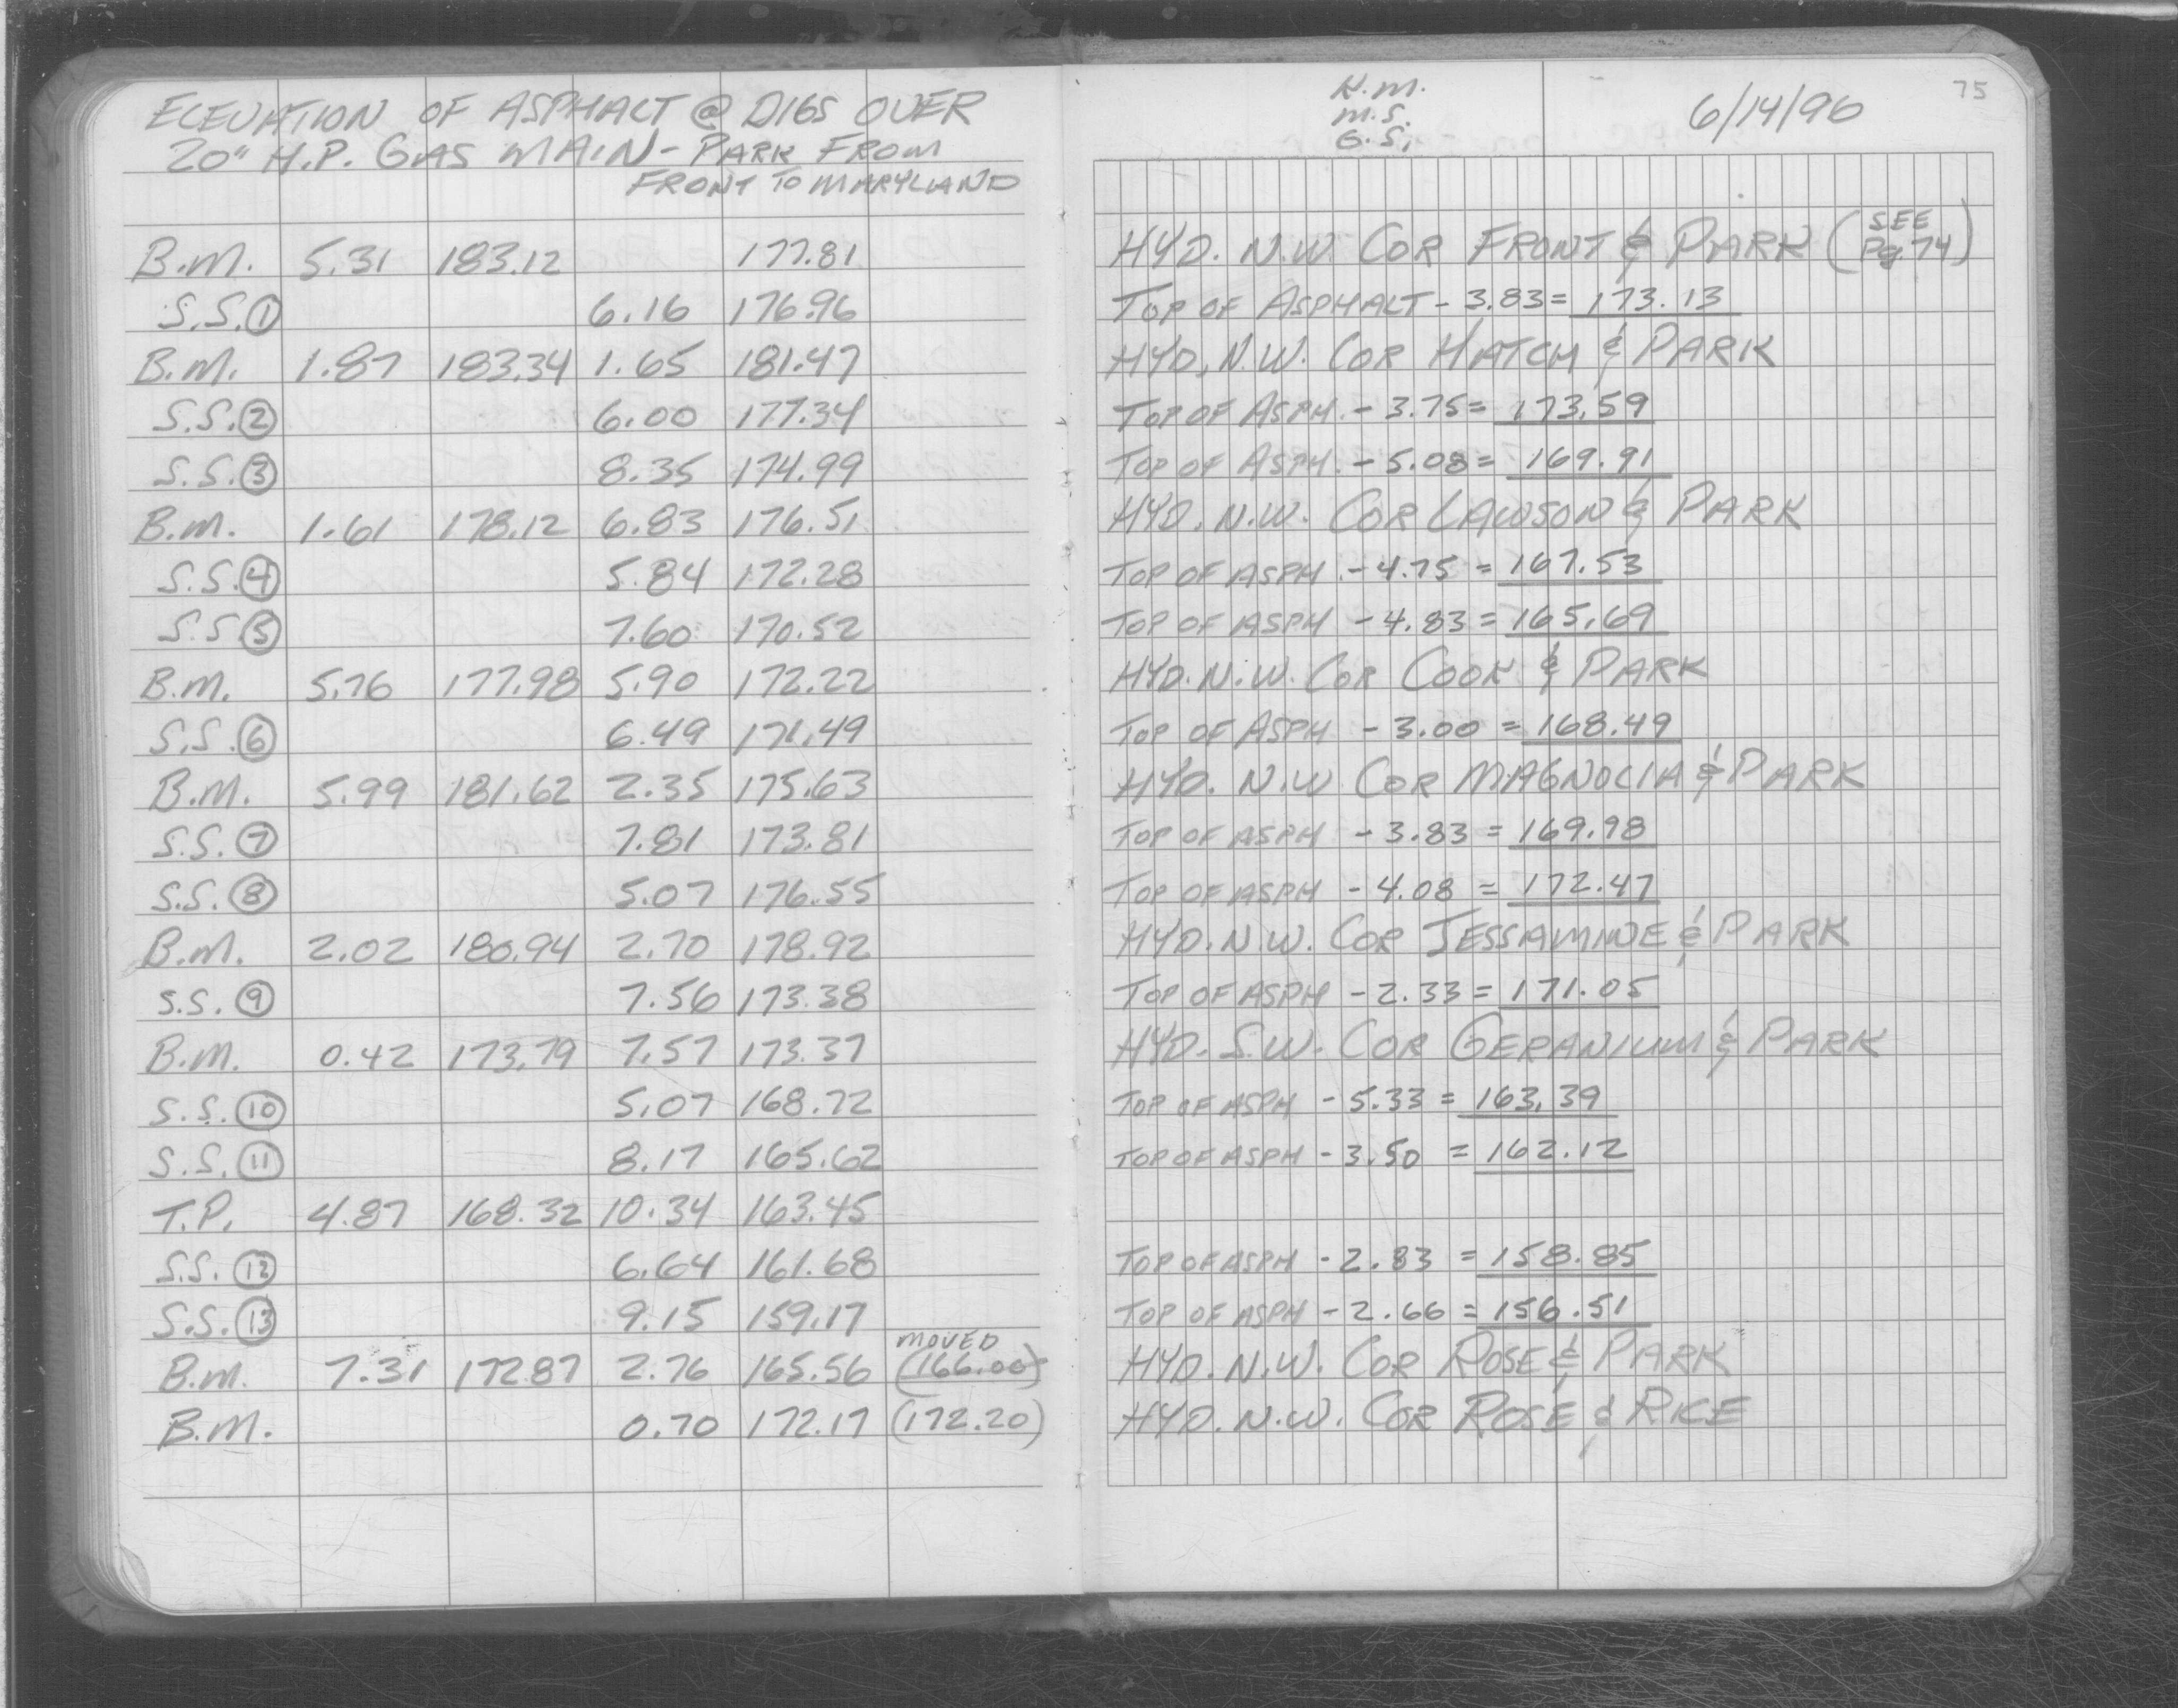 ELEVATION OF ASPHALT @ DIGS OVER
20" H.P. GAS MAIN - PARK FROM
FRONT TO MARYLAND
B.M. 5.31 183.12 177.81
S.S.① 6.16 176.96
B.M. 1.87 183.34 1.65 181.47
S.S.② 6.00 177.34
S.S.③ 8.35 174.99
B.M. 1.61 178.12 6.83 176.51
S.S.④ 5.84 172.28
S.S⑤ 7.60 170.52
B.M. 5.76 177.98 5.90 172.22
S.S.⑥ 6.49 171.49
B.M. 5.99 181.62 2.35 175.63
S.S.⑦ 7.81 173.81
S.S.⑧ 5.07 176.55
B.M. 2.02 180.94 2.70 178.92
S.S.⑨ 7.56 173.38
B.M. 0.42 173.79 7.57 173.37
S.S.⑩ 5.07 168.72
S.S.⑪ 8.17 165.62
T.P. 4.87 168.32 10.34 163.45
S.S.⑫ 6.64 161.68
S.S.⑬ 9.15 159.17
MOVED
B.M. 7.31 172.87 2.76 165.56 (166.00)
B.M. 0.70 172.17 (172.20)
K.M.
M.S.
G.S.
6/14/90
75
HYD. N.W. COR FRONT & PARK (SEE Pg. 74)
TOP OF ASPHALT - 3.83 = 173.13
HYD. N.W. COR HATCH & PARK
TOP OF ASPH. - 3.75 = 173.59
TOP OF ASPH. - 5.08 = 169.91
HYD. N.W. COR LAWSON & PARK
TOP OF ASPH. - 4.75 = 167.53
TOP OF ASPH - 4.83 = 165.69
HYD. N.W. COR COOK & PARK
TOP OF ASPH - 3.00 = 168.49
HYD. N.W. COR MAGNOLIA & PARK
TOP OF ASPH - 3.83 = 169.98
TOP OF ASPH - 4.08 = 172.47
HYD. N.W. COR JESSAMINE & PARK
TOP OF ASPH - 2.33 = 171.05
HYD. S.W. COR GERANIUM & PARK
TOP OF ASPH - 5.33 = 163.39
TOP OF ASPH - 3.50 = 162.12
TOP OF ASPH - 2.83 = 158.85
TOP OF ASPH - 2.66 = 156.51
HYD. N.W. COR ROSE & PARK
HYD. N.W. COR ROSE & RICE